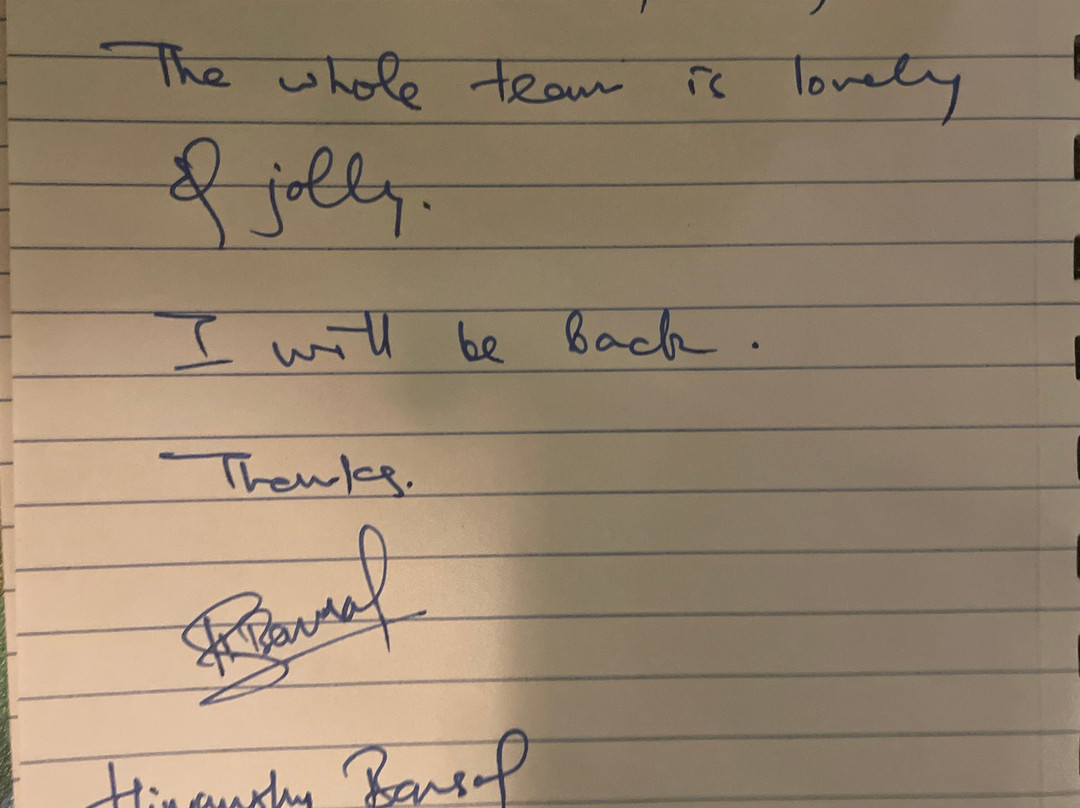 The whole team is lovely
& jolly.
I will be Back.
Thanks.
HBansal
Himanshu Bansal